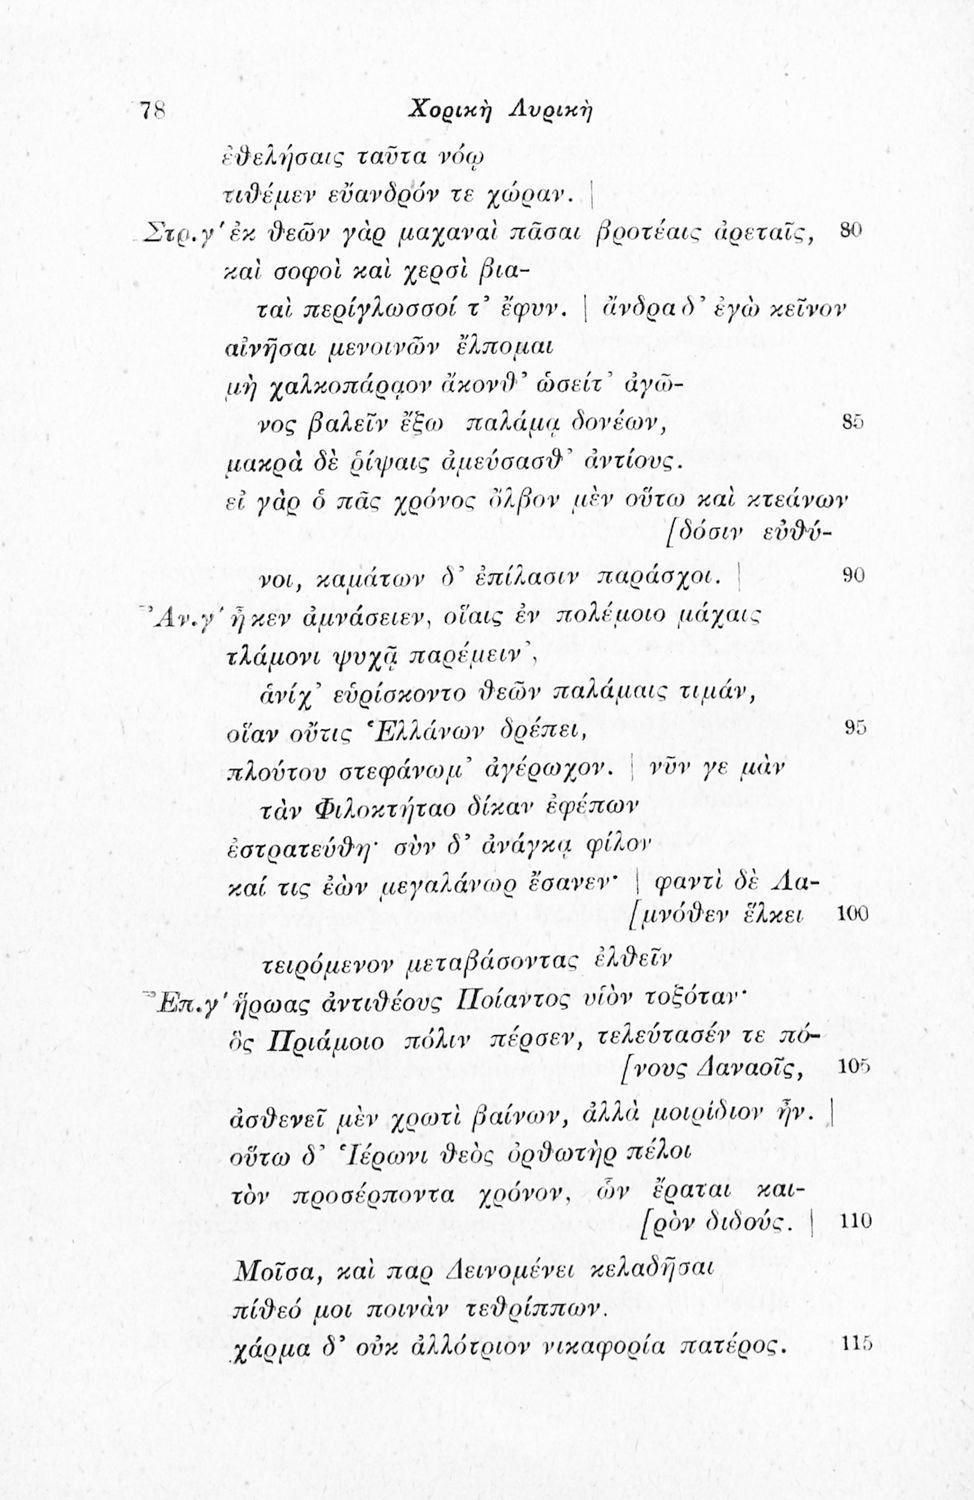 78 Χορικὴ Λυρικὴ
ἐθελήσαις ταῦτα νόῳ
τιθέμεν εὔανδρόν τε χώραν. |
Στρ.γ' ἐκ θεῶν γὰρ μαχαναὶ πᾶσαι βροτέαις ἀρεταῖς, 80
καὶ σοφοὶ καὶ χερσὶ βια-
ταὶ περίγλωσσοί τ' ἔφυν. | ἄνδρα δ' ἐγὼ κεῖνον
αἰνῆσαι μενοινῶν ἔλπομαι
μὴ χαλκοπάρᾳον ἄκονθ' ὡσείτ' ἀγῶ-
νος βαλεῖν ἔξω παλάμᾳ δονέων, 85
μακρὰ δὲ ῥίψαις ἀμεύσασθ' ἀντίους.
εἰ γὰρ ὁ πᾶς χρόνος ὄλβον μὲν οὕτω καὶ κτεάνων
[δόσιν εὐθύ-
νοι, καμάτων δ' ἐπίλασιν παράσχοι. | 90
Ἀν.γ' ἦ κεν ἀμνάσειεν, οἵαις ἐν πολέμοιο μάχαις
τλάμονι ψυχᾷ παρέμειν',
ἁνίχ' εὑρίσκοντο θεῶν παλάμαις τιμάν,
οἵαν οὔτις Ἑλλάνων δρέπει, 95
πλούτου στεφάνωμ' ἀγέρωχον. | νῦν γε μὰν
τὰν Φιλοκτήταο δίκαν ἐφέπων
ἐστρατεύθη· σὺν δ' ἀνάγκᾳ φίλον
καί τις ἐὼν μεγαλάνωρ ἔσανεν· | φαντὶ δὲ Λα-
[μνόθεν ἕλκει 100
τειρόμενον μεταβάσοντας ἐλθεῖν
Ἐπ.γ' ἥρωας ἀντιθέους Ποίαντος υἱὸν τοξόταν·
ὃς Πριάμοιο πόλιν πέρσεν, τελεύτασέν τε πό-
[νους Δαναοῖς, 105
ἀσθενεῖ μὲν χρωτὶ βαίνων, ἀλλὰ μοιρίδιον ἦν. |
οὕτω δ' Ἱέρωνι θεὸς ὀρθωτὴρ πέλοι
τὸν προσέρποντα χρόνον, ὧν ἔραται και-
[ρὸν διδούς. | 110
Μοῖσα, καὶ παρ Δεινομένει κελαδῆσαι
πίθεό μοι ποινὰν τεθρίππων.
χάρμα δ' οὐκ ἀλλότριον νικαφορία πατέρος. 115